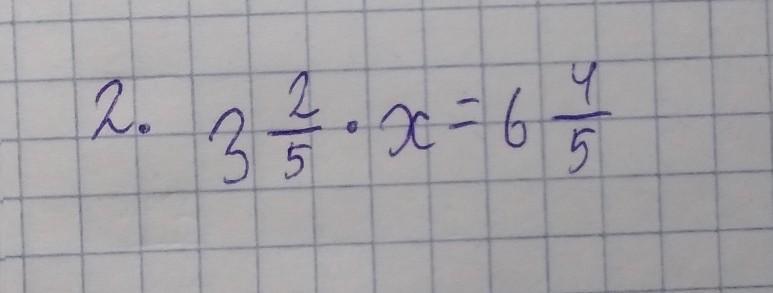 2. 3 2/5 · x = 6 4/5